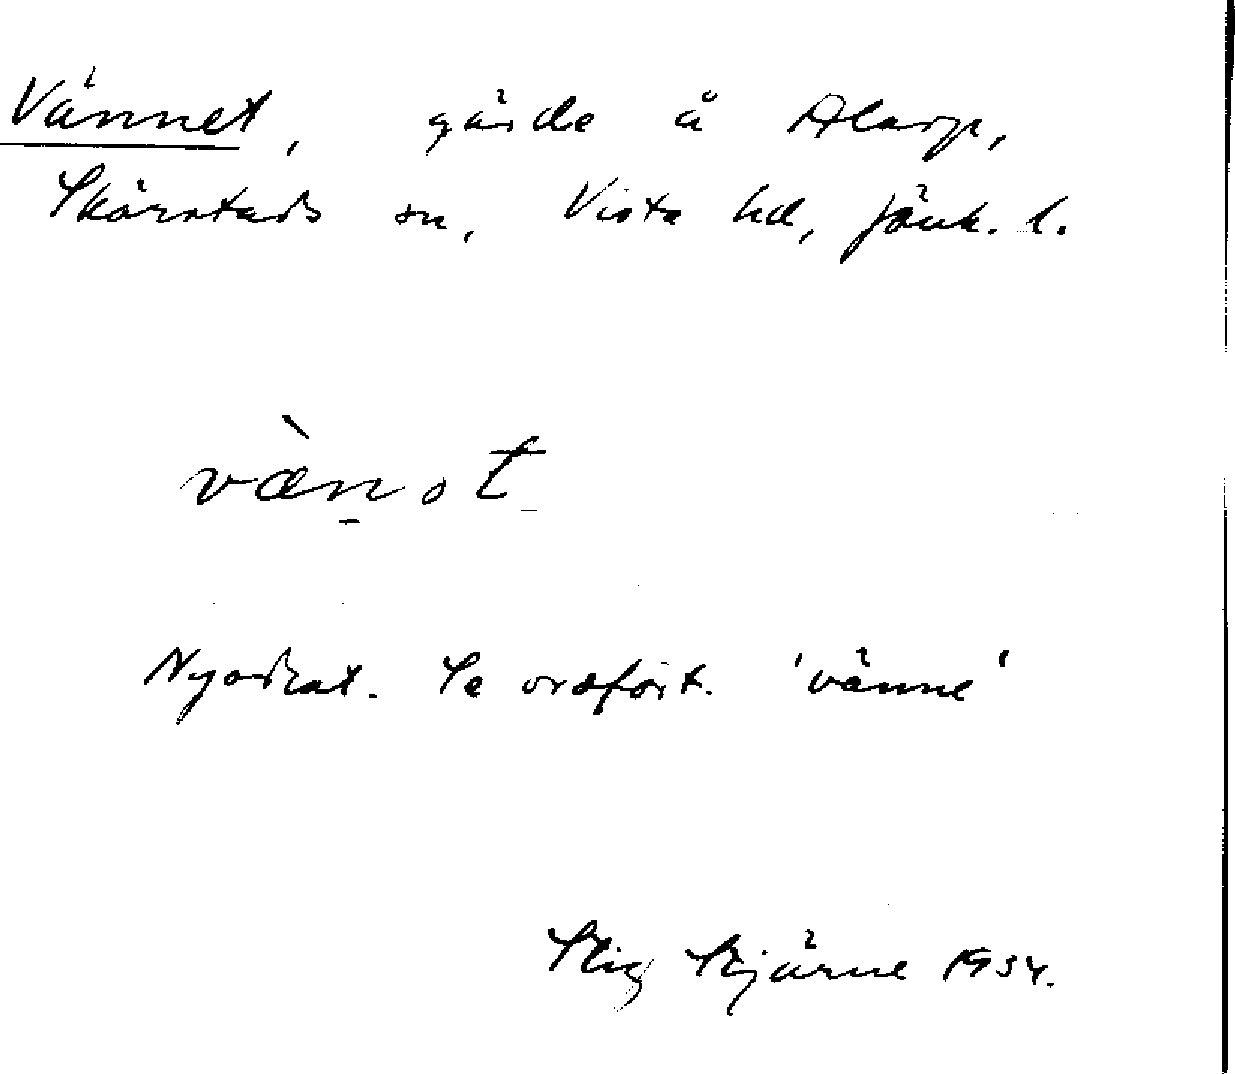 Vännet, gärde å Alarp,
Skärstads sn, Vista hd, Jönk. l.
væ̀n̠ ət
Nyodlat. Se ordfört. 'vänne'
Stig Stjärne 1934.